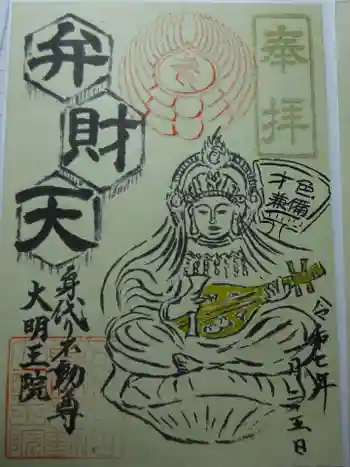 奉拝
弁財天
才色
兼備
令和七年
月二五日
身代り不動尊
大明王院